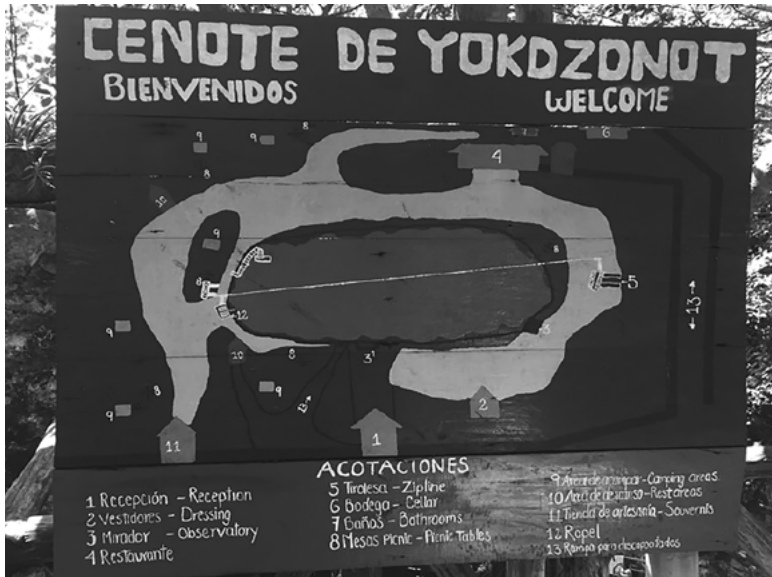 CENOTE DE YOKDZONOT
BIENVENIDOS WELCOME
9 9 8 7 6
4
8
10
9
8
6 5
12 13
9
10 8 3
8 9 13
9
11 1 2
ACOTACIONES
1 Recepción - Reception
2 Vestidores - Dressing
3 Mirador - Observatory
4 Restaurante
5 Tirolesa - Zipline
6 Bodega - Cellar
7 Baños - Bathrooms
8 Mesas Picnic - Picnic Tables
9 Area de acampar - Camping areas
10 Area de descanso - Rest areas
11 Tienda de artesania - Souvernis
12 Rapel
13 Rampa para discapacitados